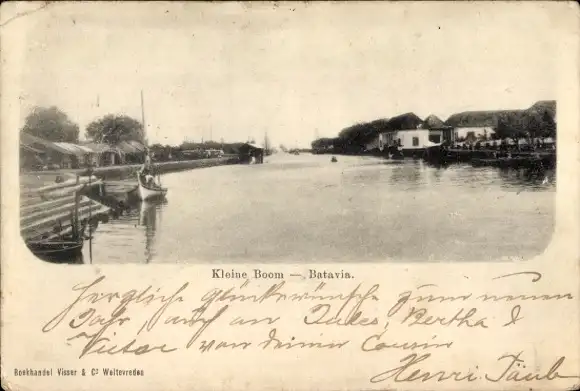 Kleine Boom — Batavia.
Herzliche Glückwünsche zum neuen
Jahr, auch an Jules, Bertha &
Victor von deinem Cousin
Henri Täub
Boekhandel Visser & Cº Weltevreden